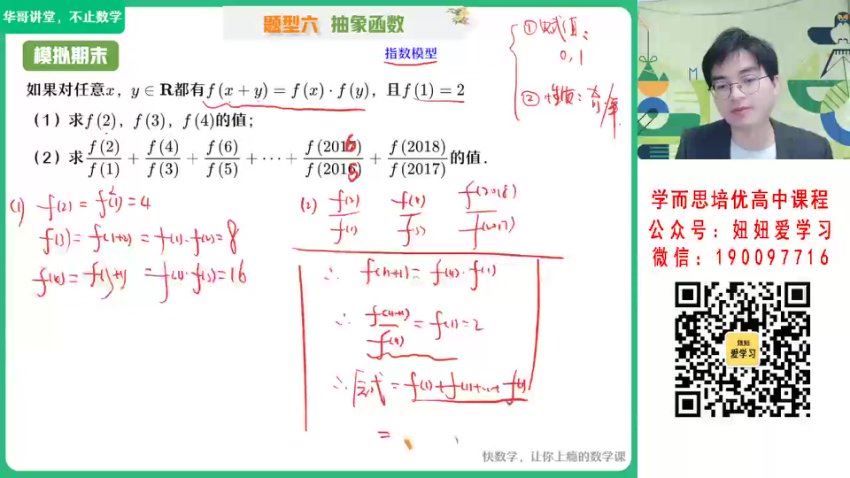 华哥讲堂，不止数学
题型六 抽象函数
模拟期末
指数模型
① 赋值：
0, 1
② 性质：奇/单
如果对任意x，y∈R都有f(x+y)=f(x)·f(y)，且f(1)=2
（1）求f(2)，f(3)，f(4)的值；
（2）求f(2)/f(1)+f(4)/f(3)+f(6)/f(5)+···+f(2016)/f(2015)+f(2018)/f(2017)的值.
(1) f(2)=f²(1)=4
f(3)=f(1+2)=f(1)·f(2)=8
f(4)=f(3+1)=f(1)·f(3)=16
(2) f(2)/f(1) f(4)/f(3) f(2018)/f(2017)
∴ f(n+1)=f(n)·f(1)
∴ f(n+1)/f(n)=f(1)=2
∴ 原式=f(1)+f(1)+…+f(1)
=
快数学，让你上瘾的数学课
学而思培优高中课程
公众号：妞妞爱学习
微信：190097716
妞妞
爱学习